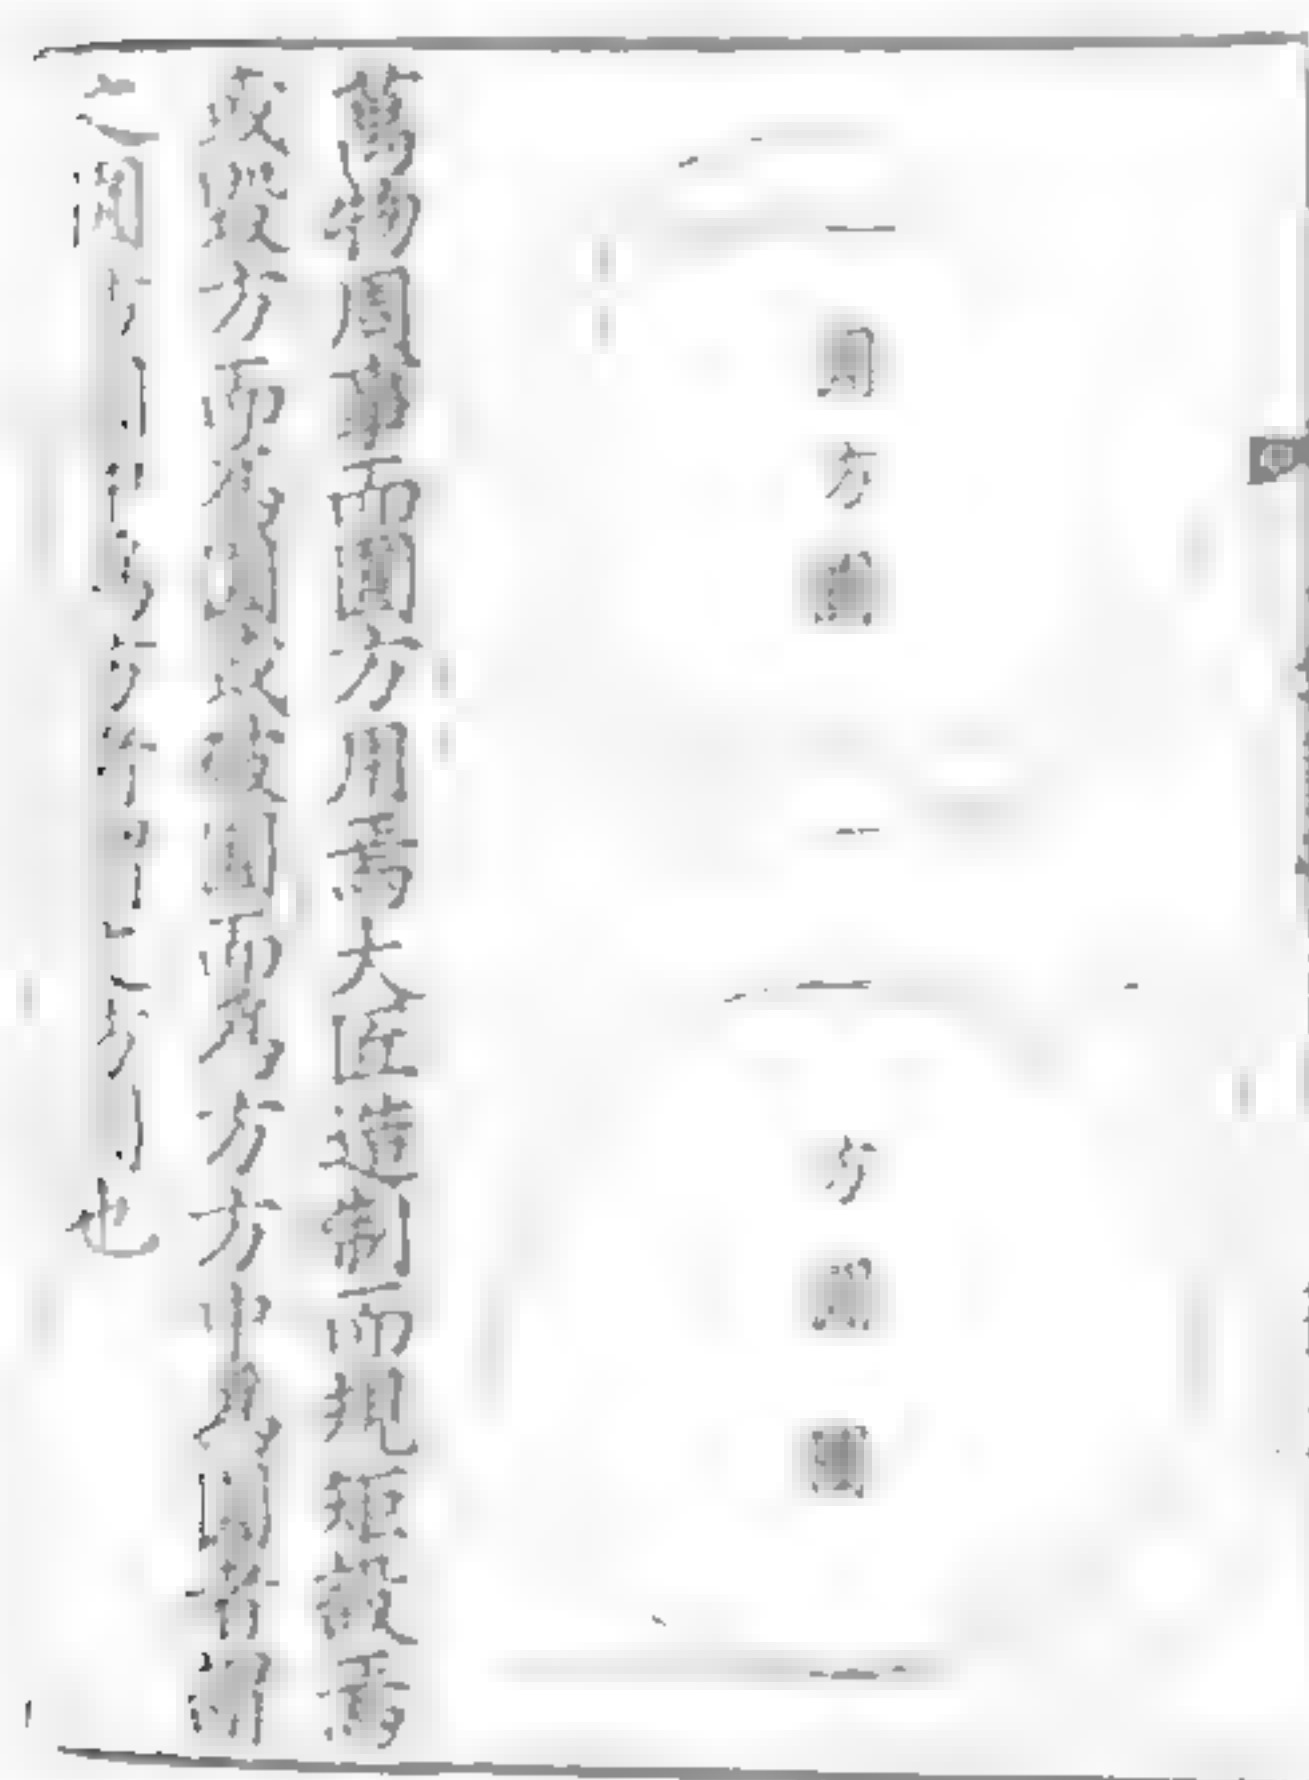 圓方圖
方圓圖
萬物周事而圓方用焉大匠造制而規矩設焉
或毀方而為圓或破圓而為方方中為圓者謂
之圓方圓中為方者謂之方圓也